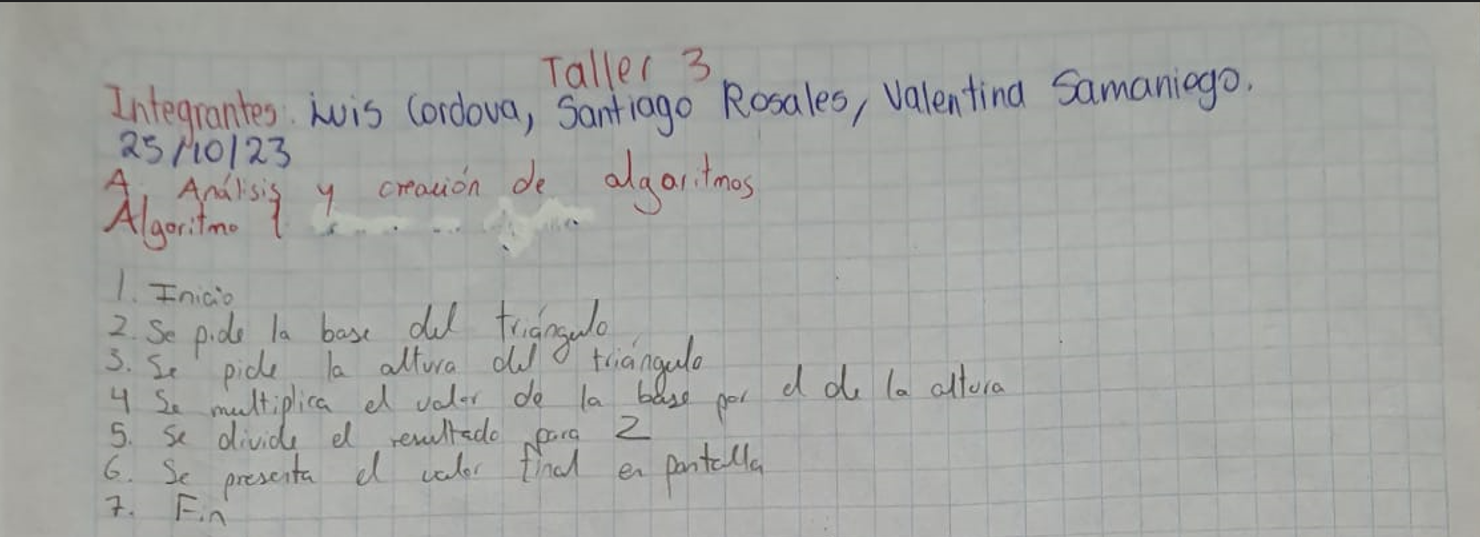 Taller 3
Integrantes: Luis Cordova, Santiago Rosales, Valentina Samaniego.
25/10/23
A. Análisis y creación de algoritmos
Algoritmo 1
1. Inicio
2. Se pide la base del triángulo
3. Se pide la altura del triángulo
4 Se multiplica el valor de la base por el de la altura
5. Se divide el resultado para 2
6. Se presenta el valor final en pantalla
7. Fin